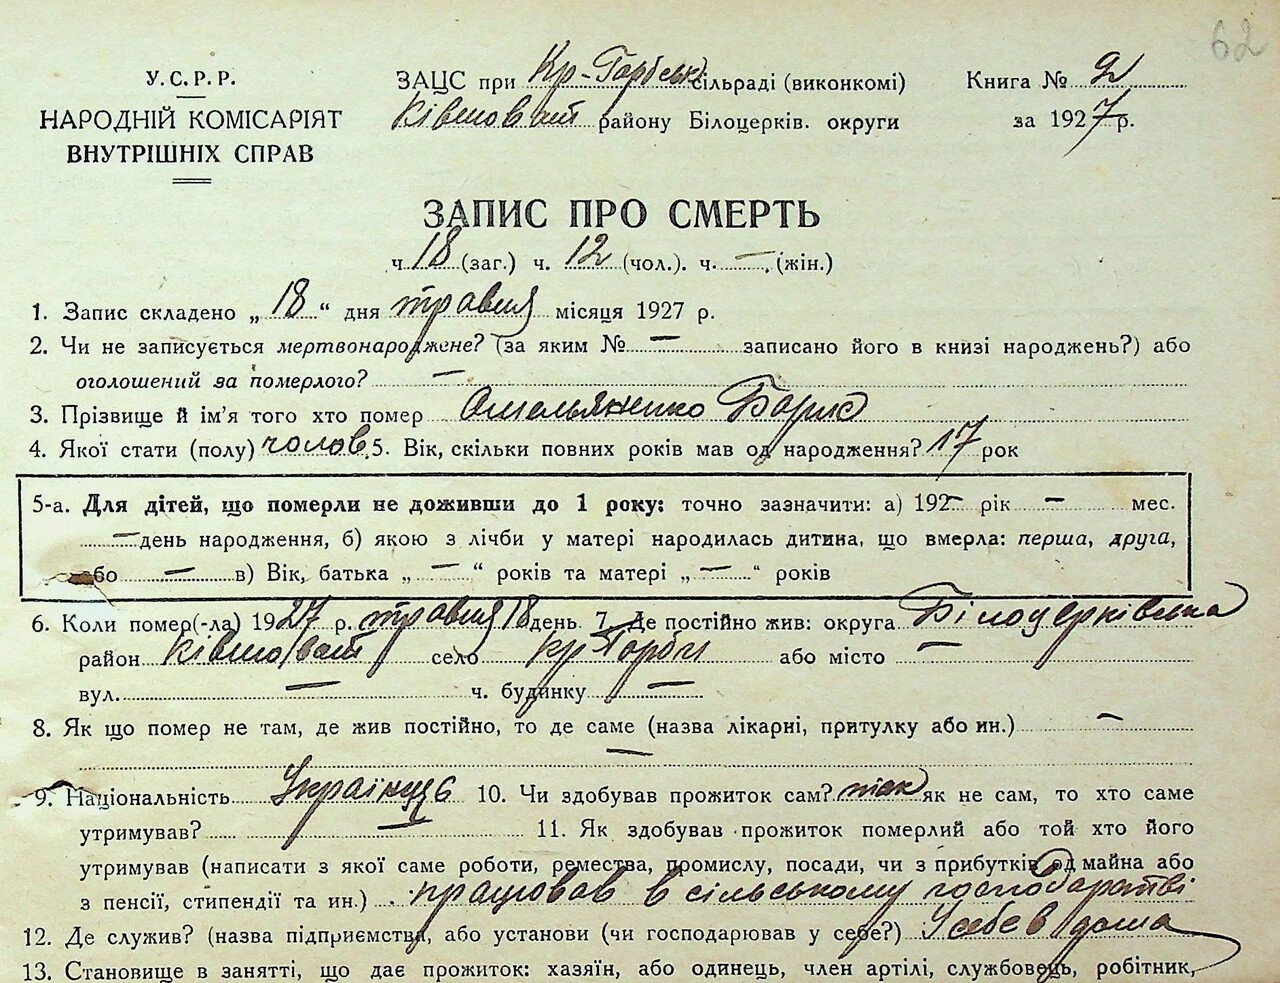 62
У.С.Р.Р.
НАРОДНІЙ КОМІСАРІЯТ
ВНУТРІШНІХ СПРАВ
ЗАЦС при Кр-Горбськ сільраді (виконкомі)
Ківшоват району Білоцерків. округи
Книга № 2
за 1927 р.
ЗАПИС ПРО СМЕРТЬ
ч. 18 (заг.) ч. 12 (чол.). ч. — (жін.)
1. Запис складено „ 18 “ дня травня місяця 1927 р.
2. Чи не записується мертвонароджене? (за яким № — записано його в книзі народжень?) або
оголошений за померлого? —
3. Прізвище й ім'я того хто помер Омельяненко Борис
4. Якої стати (полу) чолов. 5. Вік, скільки повних років мав од народження? 17 рок
5-а. Для дітей, що померли не доживши до 1 року: точно зазначити: а) 192– рік — мес.
— день народження, б) якою з лічби у матері народилась дитина, що вмерла: перша, друга,
або — в) Вік, батька „ — “ років та матері „ — “ років
6. Коли помер(-ла) 1927 р. травня 18 день 7. Де постійно жив: округа Білоцерківська
район Ківшоват село Кр Горби або місто —
вул. — ч. будинку —
8. Як що помер не там, де жив постійно, то де саме (назва лікарні, притулку або ин.) —
—
9. Національність Українець 10. Чи здобував прожиток сам? так як не сам, то хто саме
утримував? — 11. Як здобував прожиток померлий або той хто його
утримував (написати з якої саме роботи, ремества, промислу, посади, чи з прибутків од майна або
з пенсії, стипендії та ин.) працював в сільському господарстві
12. Де служив? (назва підприємства, або установи (чи господарював у себе?) У себе в дома
13. Становище в занятті, що дає прожиток: хазяїн, або одинець, член артілі, службовець, робітник,